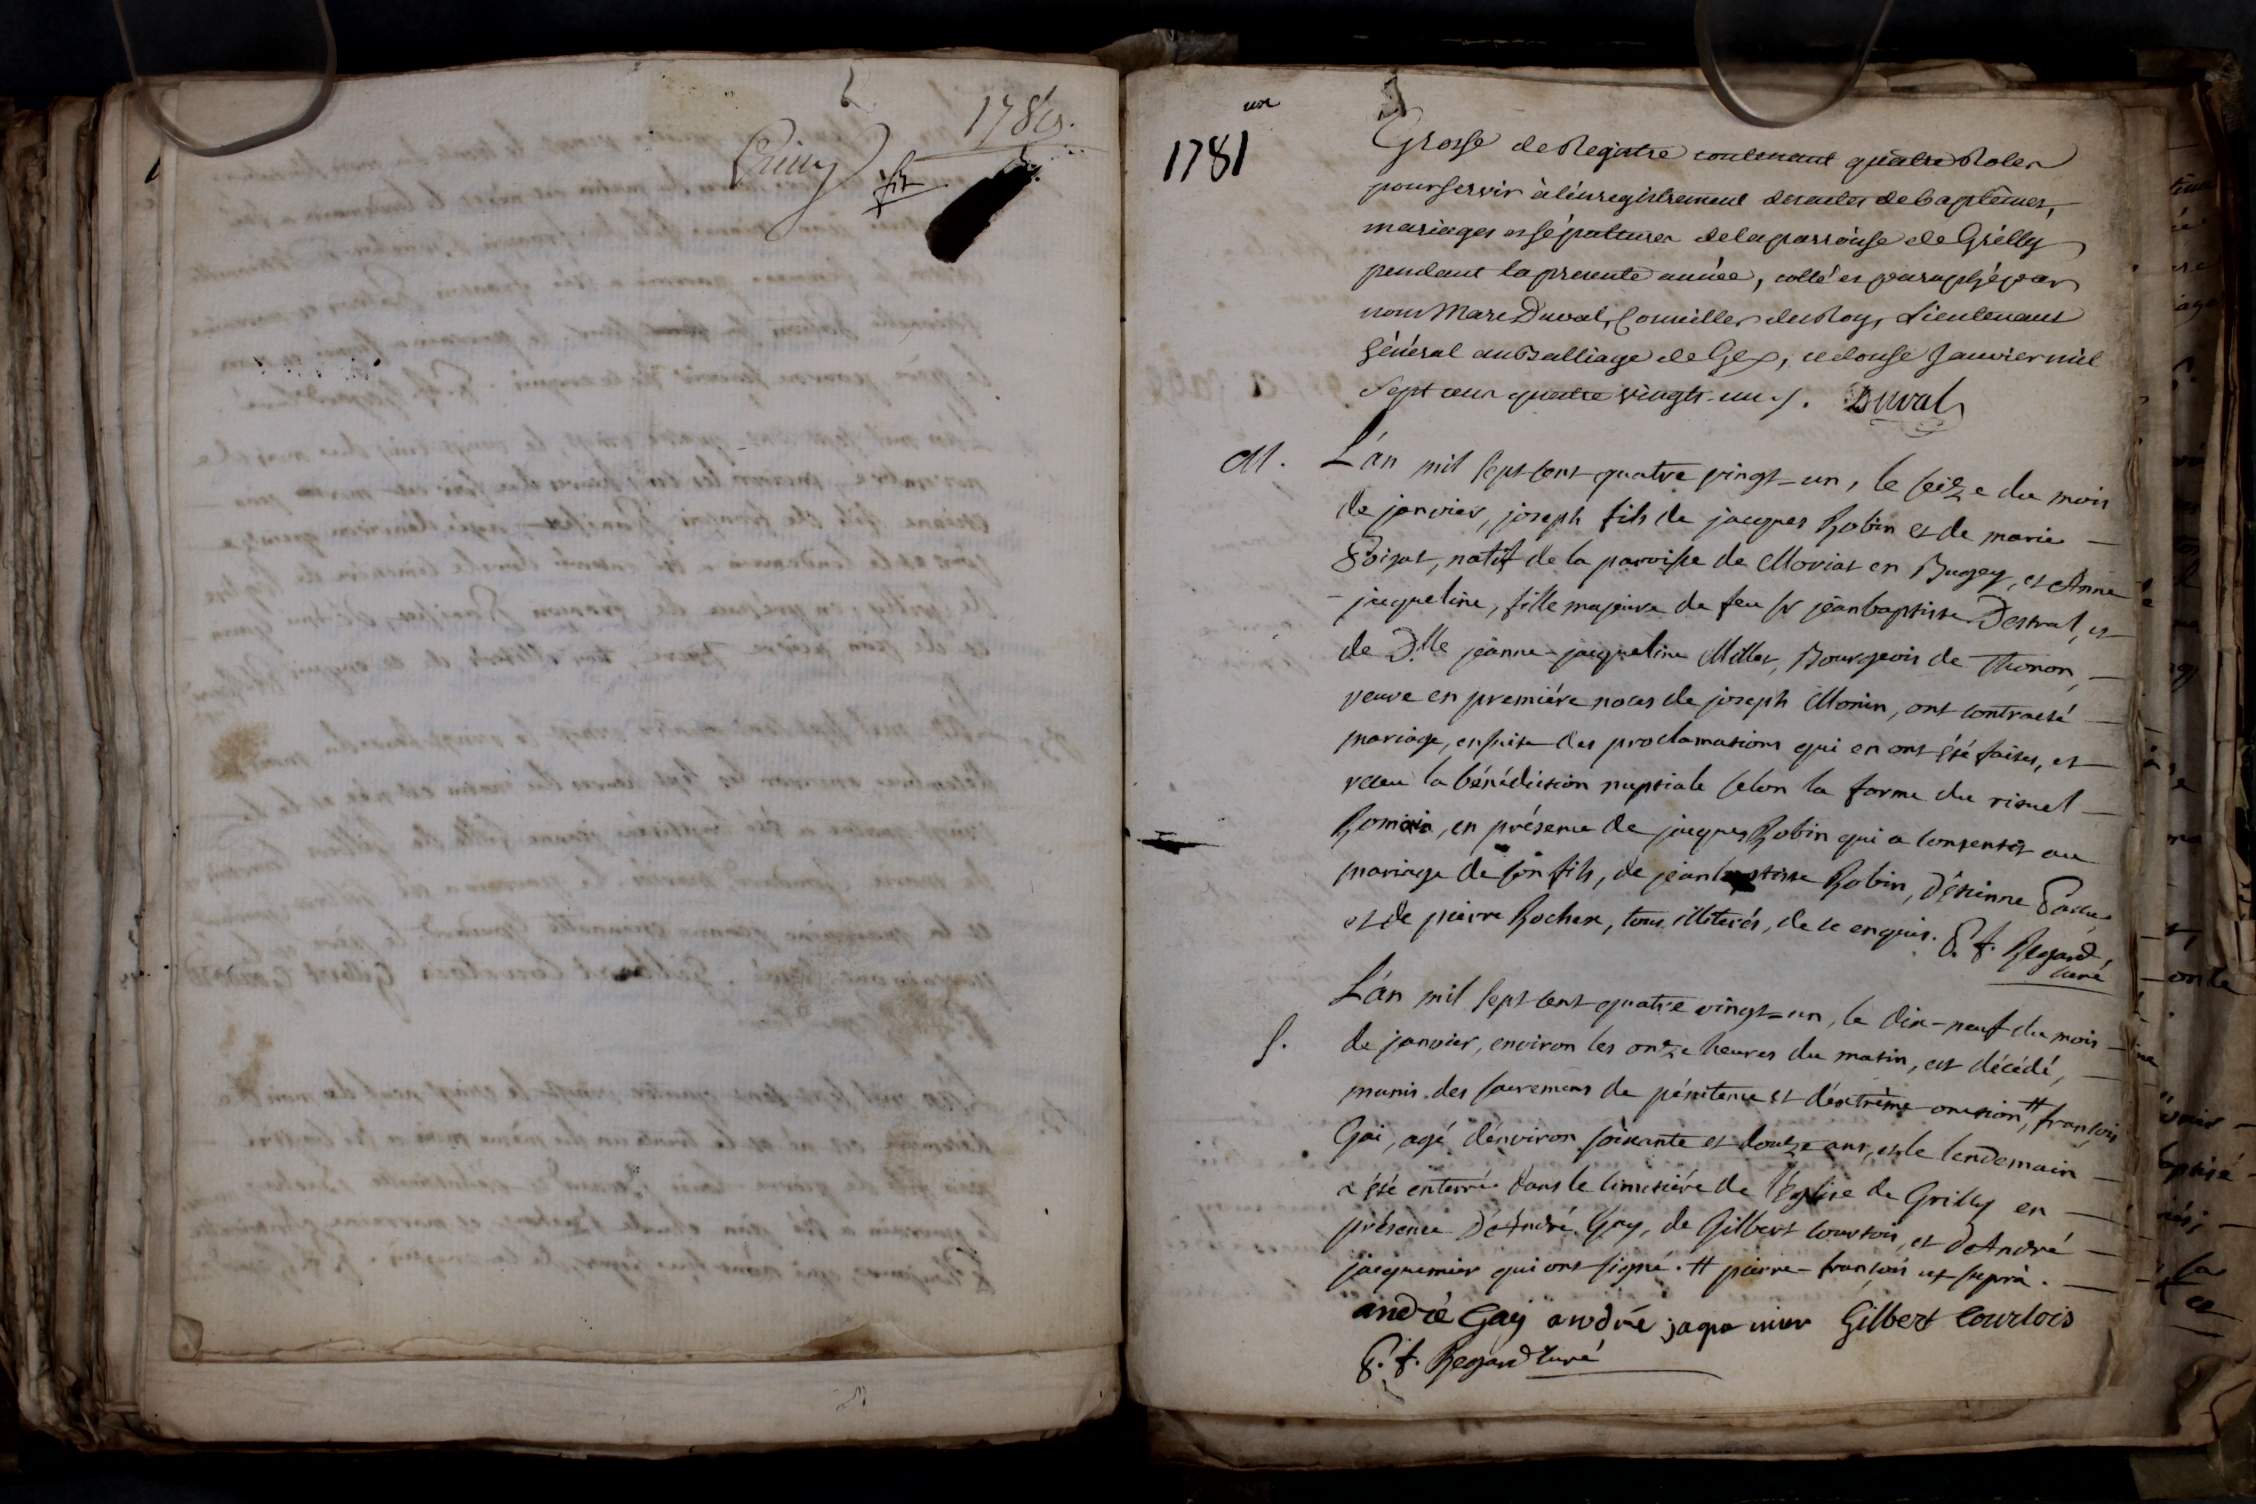 1780.
un
1781
Grosse de Registre contenant quatre Roles
pour servir à l'enregistrement des actes de baptêmes,
mariages et sépultures de la parroisse de Grilly
pendant la presente année, cotté et paraphé par
nous Marc Duval, Conseiller du Roy, Lieutenant
général au Balliage de Gex, ce douse Janvier mil
sept cens quatre vingts un /. Duval
M. L'an mil sept cent quatre vingt-un, le seize du mois
de janvier, joseph fils de jacques Robin et de marie
natif de la paroisse de Moriat en Bugey, et Anne
jacqueline, fille majeure de feu sr jean baptiste Destral, et
de D.lle jeanne-jacqueline Millet, Bourgeois de Thonon,
veuve en premiére noces de joseph Monin, ont contracté
mariage, ensuite des proclamations qui en ont été faites, et
receu la bénédiction nuptiale selon la forme du rituel
Romain, en présence de jacques Robin qui a consenti au
mariage de son fils, de jean baptiste Robin, d'étienne
et de pierre Rochex, tous illiterés, de ce enquis. P. f. Regard,
curé
L'an mil sept cent quatre vingt-un, le dix-neuf du mois
S. de janvier, environ les onze heures du matin, est décédé,
munis des sacremens de pénitence et d'extrême onction, # françois
Gai, agé d'environ soixante et douze ans, et le lendemain
a été enterré dans le cimetiére de l'Eglise de Grilly en
présence D'André Gay, de Gilbert Courtois, et d'André
jacquemier qui ont signé. # pierre-françois ut suprà.
andré Gay andré jaquemier Gilbert Courtois
P. f. Regard Curé